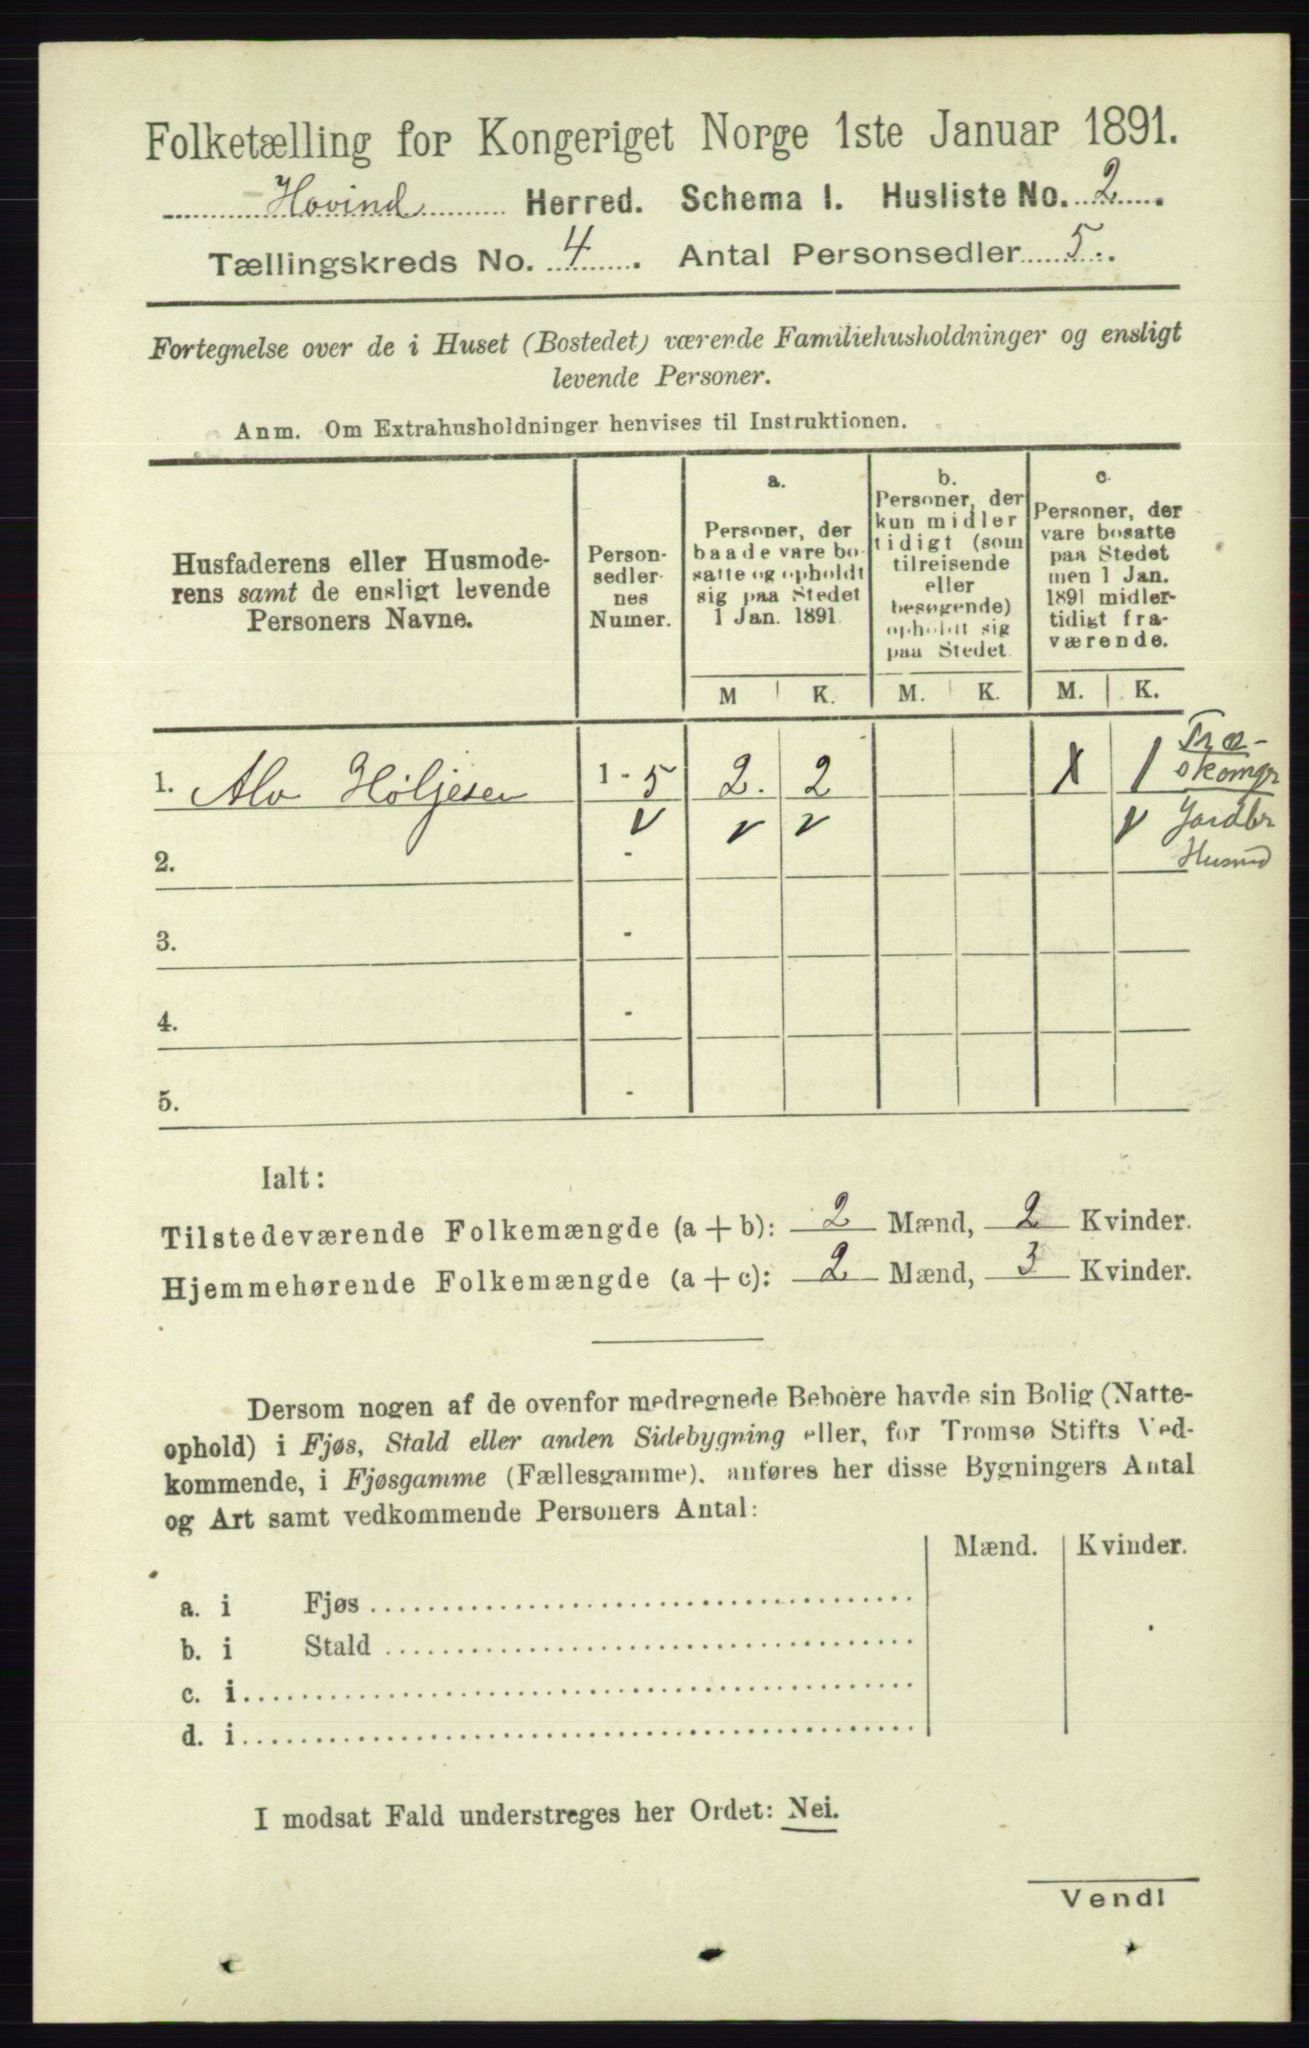 Folketælling for Kongeriget Norge 1ste Januar 1891.
Hovind Herred. Schema I. Husliste No. 2.
Tællingskreds No. 4. Antal Personsedler 5.
Fortegnelse over de i Huset (Bostedet) værende Familiehusholdninger og ensligt
levende Personer.
Anm. Om Extrahusholdninger henvises til Instruktionen.
Husfaderens eller Husmode-
rens samt de ensligt levende
Personers Navne.
Person-
sedler-
nes
Numer.
a.
Personer, der
baade vare bo-
satte og opholdt
sig paa Stedet
1 Jan. 1891.
b.
Personer, der
kun midler
tidigt (som
tilreisende
eller
besøgende)
opholdt sig
paa Stedet.
c.
Personer, der
vare bosatte
paa Stedet
men 1 Jan.
1891 midler-
tidigt fra-
værende.
M K. M. K. M. K.
1. Alv Høljesen 1 - 5 2. 2 1 Træ-
skomgr
Jordbr
Husmd
2. -
3. -
4. -
5. -
Ialt:
Tilstedeværende Folkemængde (a + b): 2 Mænd, 2 Kvinder.
Hjemmehørende Folkemængde (a + c): 2 Mænd, 3 Kvinder.
Dersom nogen af de ovenfor medregnede Beboere havde sin Bolig (Natte-
ophold) i Fjøs, Stald eller anden Sidebygning eller, for Tromsø Stifts Ved-
kommende, i Fjøsgamme (Fællesgamme), anføres her disse Bygningers Antal
og Art samt vedkommende Personers Antal:
Mænd. Kvinder.
a. i Fjøs
b. i Stald
c. i
d. i
I modsat Fald understreges her Ordet: Nei.
Vend!